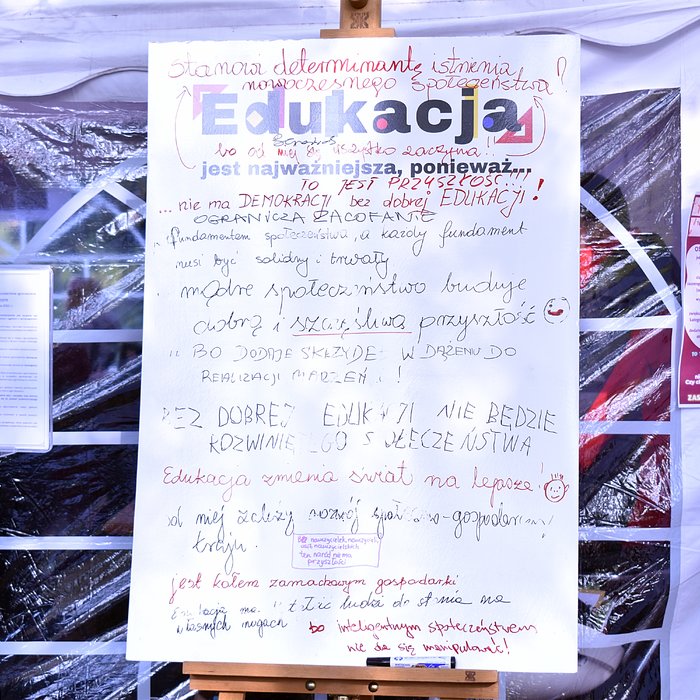 Stanowi determinantę istnienia
nowoczesnego społeczeństwa!
Edukacja
bo od niej się wszystko zaczyna!!
jest najważniejsza, ponieważ...
TO JEST PRZYSZŁOŚĆ...
... nie ma DEMOKRACJI bez dobrej EDUKACJI!
OGRANICZA ZACOFANIE
fundamentem społeczeństwa, a każdy fundament
musi być solidny i trwały
mądre społeczeństwo buduje
dobrą i szczęśliwą przyszłość
BO DODAJE SKRZYDEŁ W DĄŻENIU DO
REALIZACJI MARZEŃ!
BEZ DOBREJ EDUKACJI NIE BĘDZIE
ROZWINIĘTEGO SPOŁECZEŃSTWA
Edukacja zmienia świat na lepsze!
od niej zależy rozwój społeczno-gospodarczy
kraju.
bez nauczycielek, nauczycieli,
ten naród nie ma
przyszłości
jest kołem zamachowym gospodarki
ludzi do
własnych nogach
bo inteligentnym społeczeństwem
nie da się manipulować!